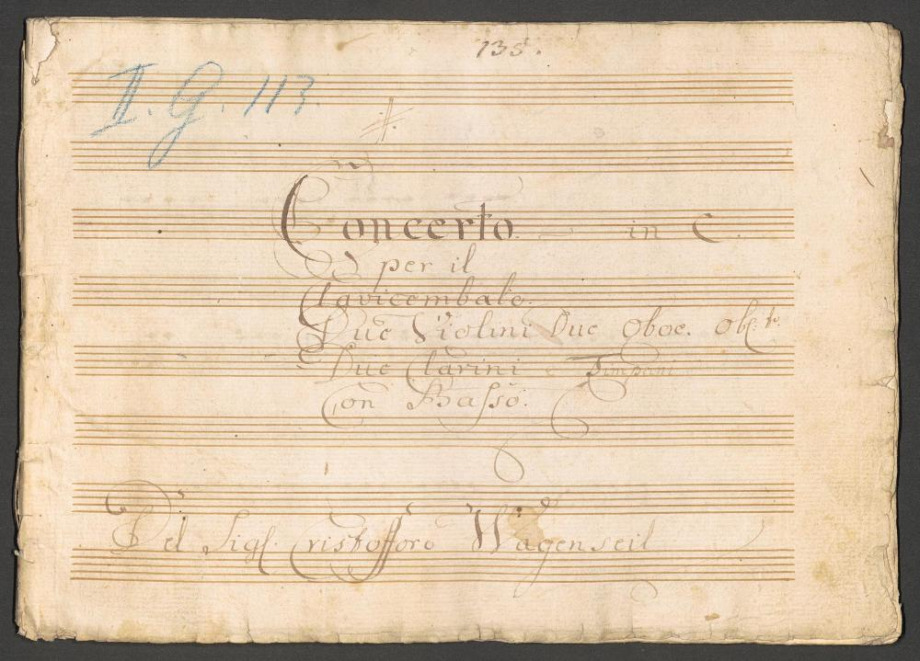 135.
II. G. 113.
Concerto. in C.
per il
Clavicembalo.
Due Violini Due Oboe. Obl:te
Due Clarini e Timpani
Con Basso.
Del Sigl. Cristofforo Wagenseil